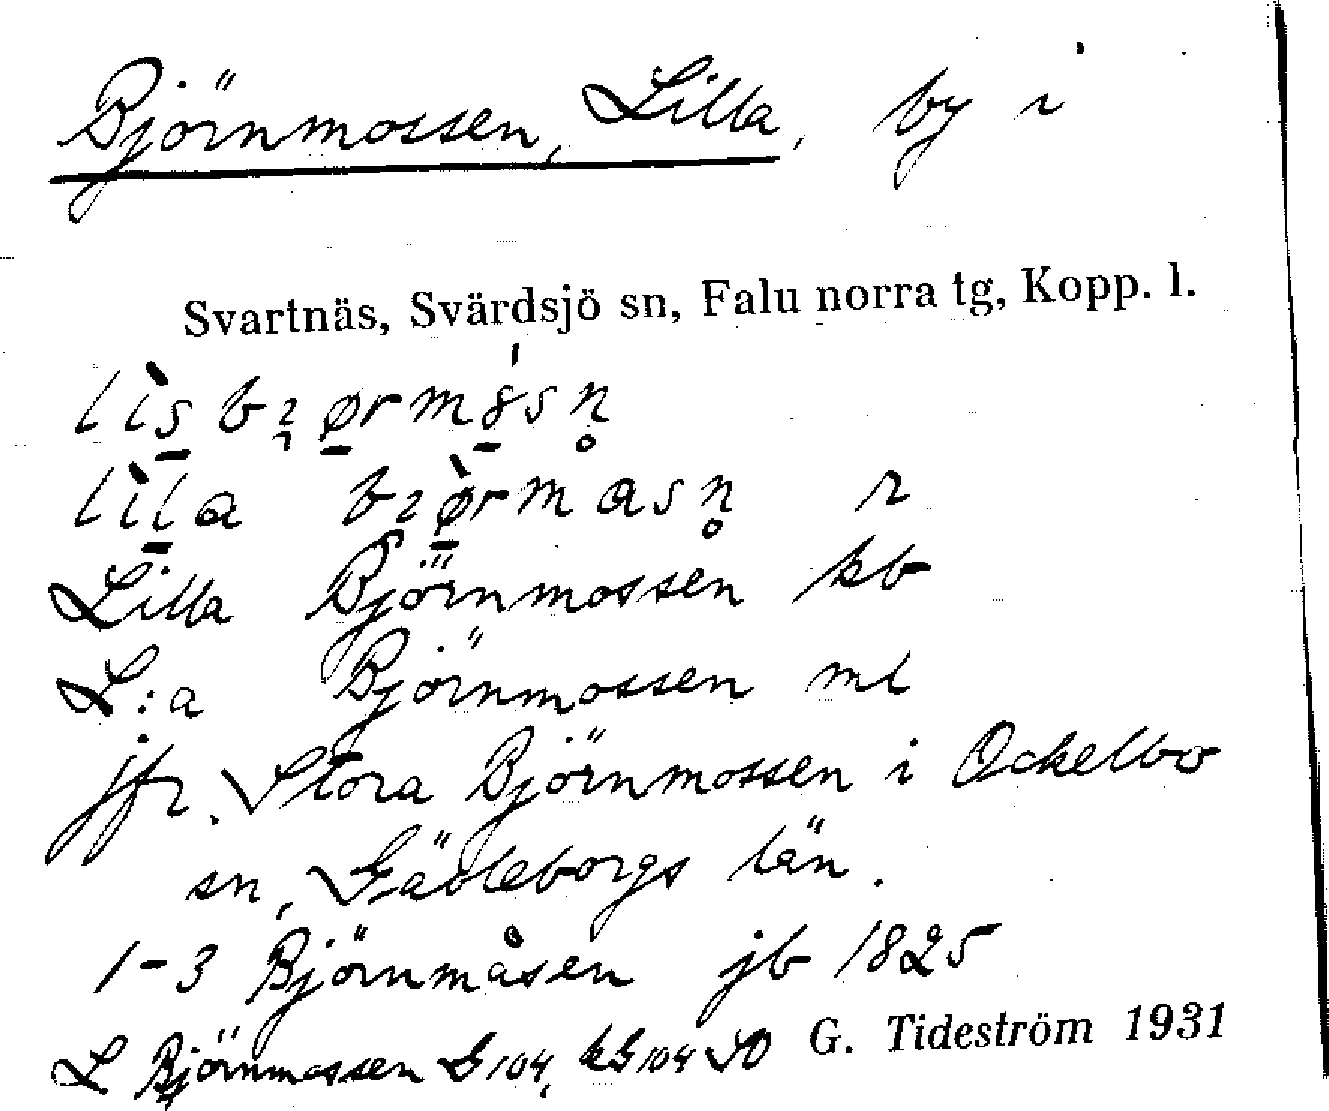 Björnmossen, Lilla, by i
Svartnäs, Svärdsjö sn, Falu norra tg, Kopp. l.
Lilla Björnmossen kb
L:a Björnmossen ml
jfr. Stora Björnmossen i Ockelbo
sn, Gävleborgs län.
1-3 Björnmåsen jb 1825
L Björnmossen G 104, kG 104 SO G. Tideström 1931